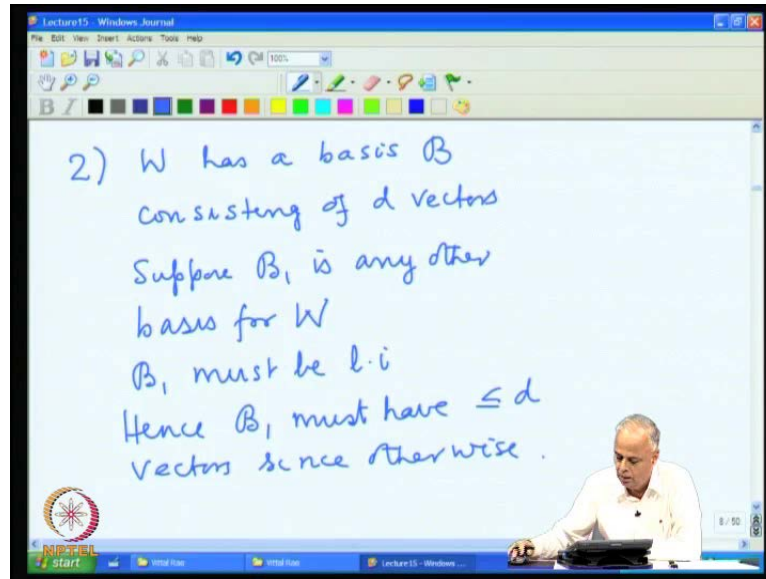 Lecture15 - Windows Journal
File Edit View Insert Actions Tools Help
100%
B I
2) W has a basis B
consisting of d vectors
Suppose B₁ is any other
basis for W
B₁ must be l.i
Hence B₁ must have ≤ d
vectors since otherwise.
8 / 50
NPTEL
start Vittal Rao Vittal Rao Lecture15 - Windows ...